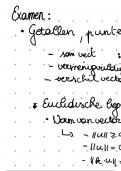 Examen:
• Getallen, punte
- som vect
- vermenigvuldi
- verschil vect
* Euclidische beg
- Norm van vector
↳ - ||u|| ≥ 0
- ||u|| =
- ||k·u|| =